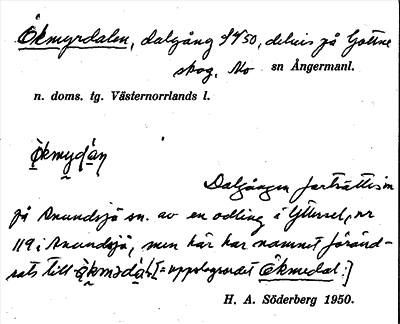 Ökmyrdalen, dalgång 9450, delvis på Gottne
skog, Mo sn Ångermanl.
n. doms. tg. Västernorrlands l.
ö̀kmyd̀àn
Dalgången fortsätter in
på Anundsjö sn. av en odling i Yttersel, nr
119 i Anundsjö, men här har namnet föränd-
rats till [= uppslagsordet Ökmedal.]
H. A. Söderberg 1950.